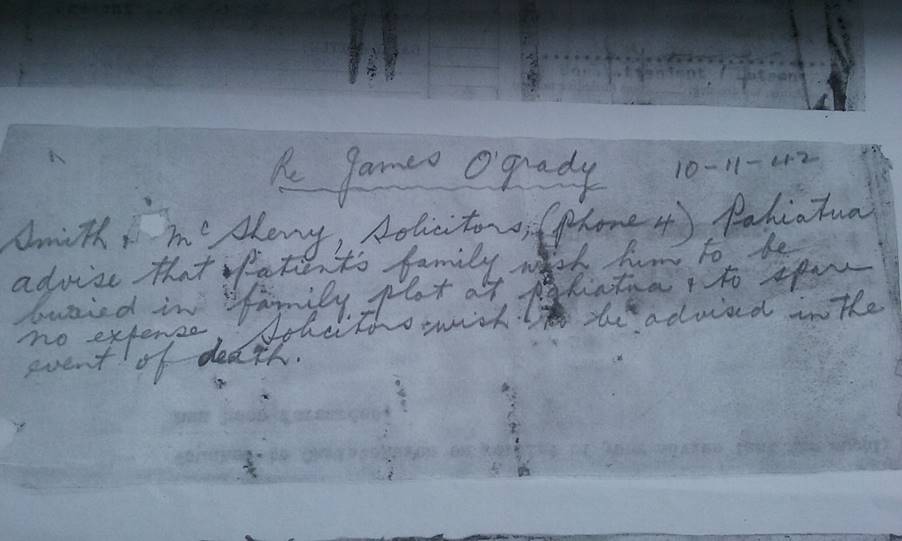 Re James O'Grady 10-11-42
Smith & McSherry, Solicitors, (Phone 4) Pahiatua
advise that Patient's family wish him to be
buried in family plot at Pahiatua & to spare
no expense Solicitors wish to be advised in the
event of death.